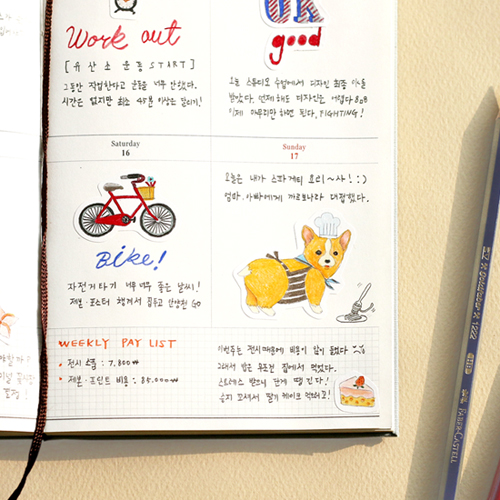 Work out
[유산소 운동 START]
그동안 작업한다고 운동을 너무 안했다.
시간은 없지만 최소 45분 이상은 달리기!
OK
good
오늘 스튜디오 수업에서 디자인 최종
받았다. 언제해도 디자인은 어렵다
이제 마무리만 하면 된다, FIGHTING!
Saturday
16
Bike!
자전거타기 너무 너무 좋은 날씨!
제본・포스터 챙겨서 GO
Sunday
17
오늘은 내가 스파게티 요리~사! :)
엄마, 아빠에게 까르보나라 대접했다.
WEEKLY PAY LIST
• 전시 소품 : 7,800₩
• 제본・프린트 비용 : 85,000₩
이번주는 전시때문에 비용이 많이 들었다
그래서 밥은 무조건 집에서 먹었다.
스트레스 받으니 단게 땡긴다!
습지 꼬셔서 딸기 케이크 먹으러고!
FABER-CASTELL